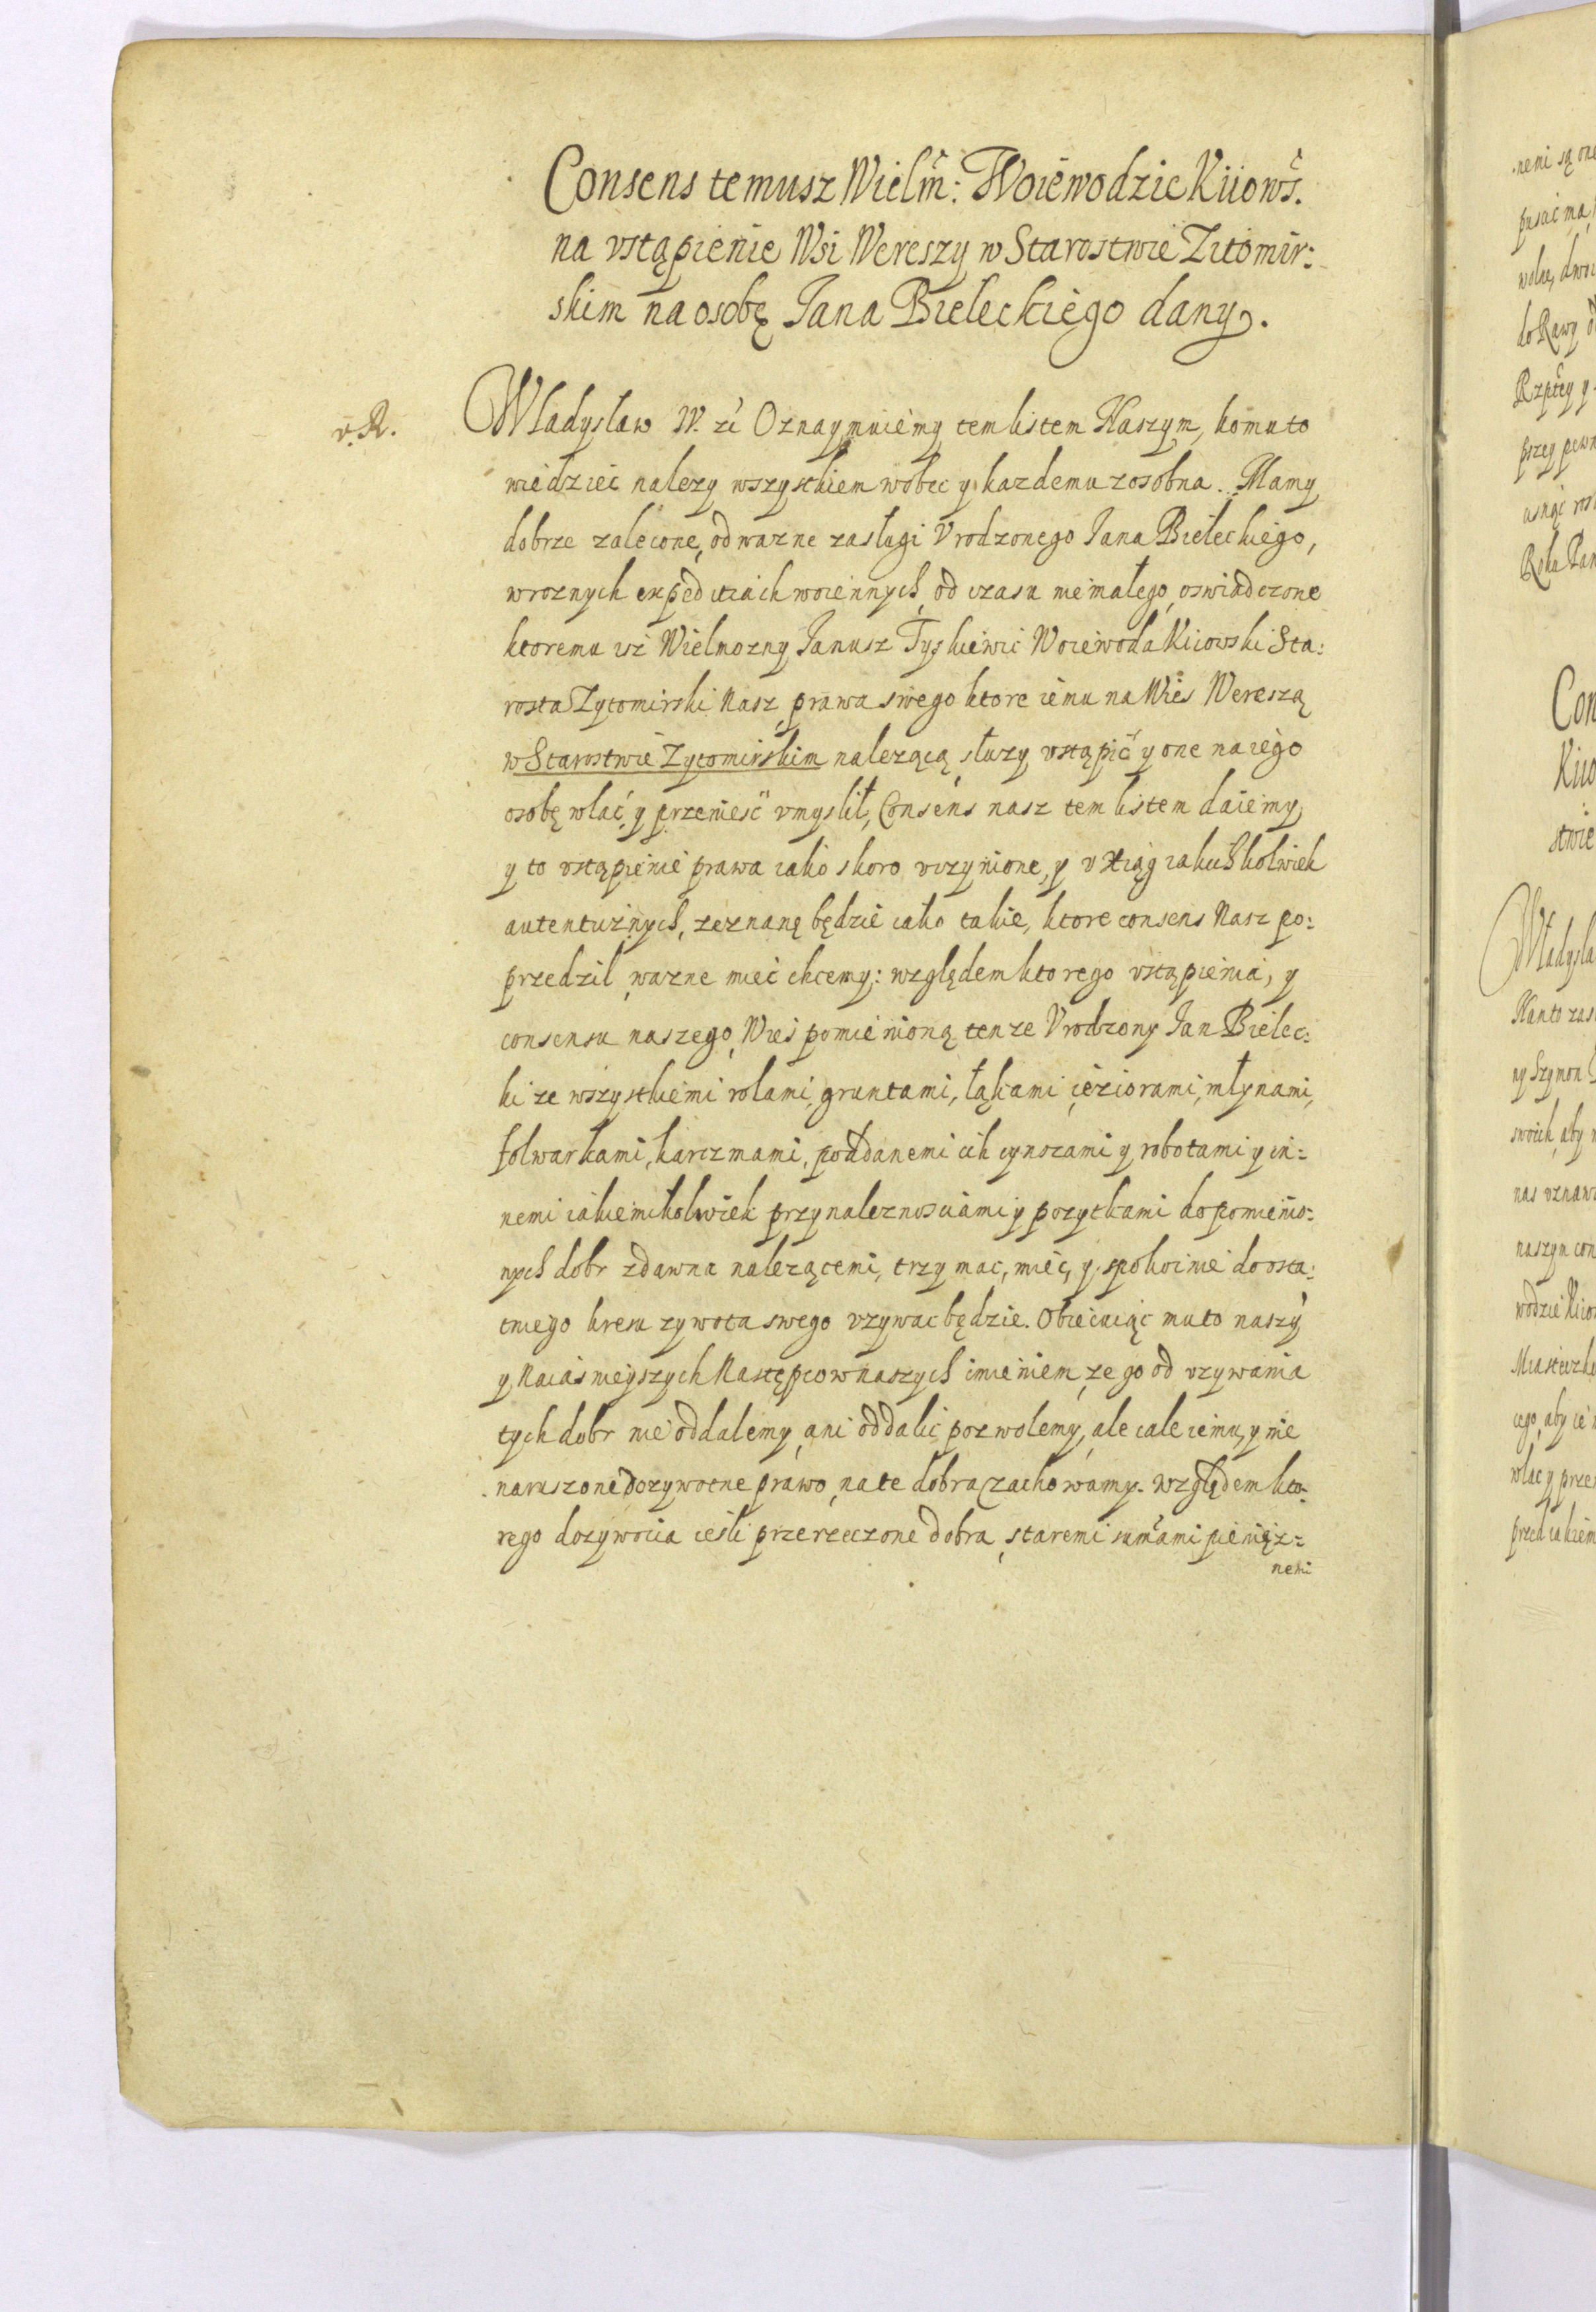 Consens temusz Wielm̃: Woiewodzie Kiiows̃.
na vstąpienie Wsi Wereszy w Starostwie Zitomir:
skim na osobę Jana Bieleckiego dany.
v. R.
Władysław IV. zc̀ Oznaymuiemy tem listem Naszym, komu to
wiedzieć nalezy wszystkiem wobec y kazdemu zosobna. Mamy
dobrze zalecone, odwazne zasługi Vrodzonego Jana Bieleckiego,
wroznych expedicziach woiennych, od czasu niemałego, oswiadczone
ktoremu isz Wielmozny Janusz Tyskiewic Woiewoda Kiiowski Sta:
rosta Zytomirski Nasz, prawa swego ktore iemu na Wies Wereszą
w Starostwie Zytomirskim nalezącą, słuzy vstąpić y one na iego
osobę wlać y przeniesć vmyslił, Consens nasz tem listem daiemy,
y to vstąpienie prawa iako skoro vczynione, y v Xiąg iakichkolwiek
autenticznych, zeznanę będzie iako takie, ktore consens Nasz po:
przedzil, wazne mieć chcemy: względem ktorego vstąpienia, y
consensu naszego, Wies pomienioną tenze Vrodzony Jan Bielec:
ki ze wszystkiemi rolami, gruntami, łąkami ieziorami, młynami,
folwarkami, karczmami, poddanemi ich czynszami y robotami y in:
nemi iakiemikolwiek przynaleznosciami y pozytkami do pomienio:
nych dobr zdawna nalezącemi, trzymac, mieć, y spokoinie do osta:
tniego kresu zywota swego vzywac będzie. Obiecuiąc mu to naszỹ
y Naiasnieyszych Następcow naszych imieniem, ze go od vzywania
tych dobr nie oddalemy, ani oddalic pozwolemy, ale cale iemu, y nie
naruszone dozywotne prawo, na te dobra zachowamy. Względem kto:
rego dozywocia iesli przerzeczone dobra, staremi sum̃ami pienięz:
nemi